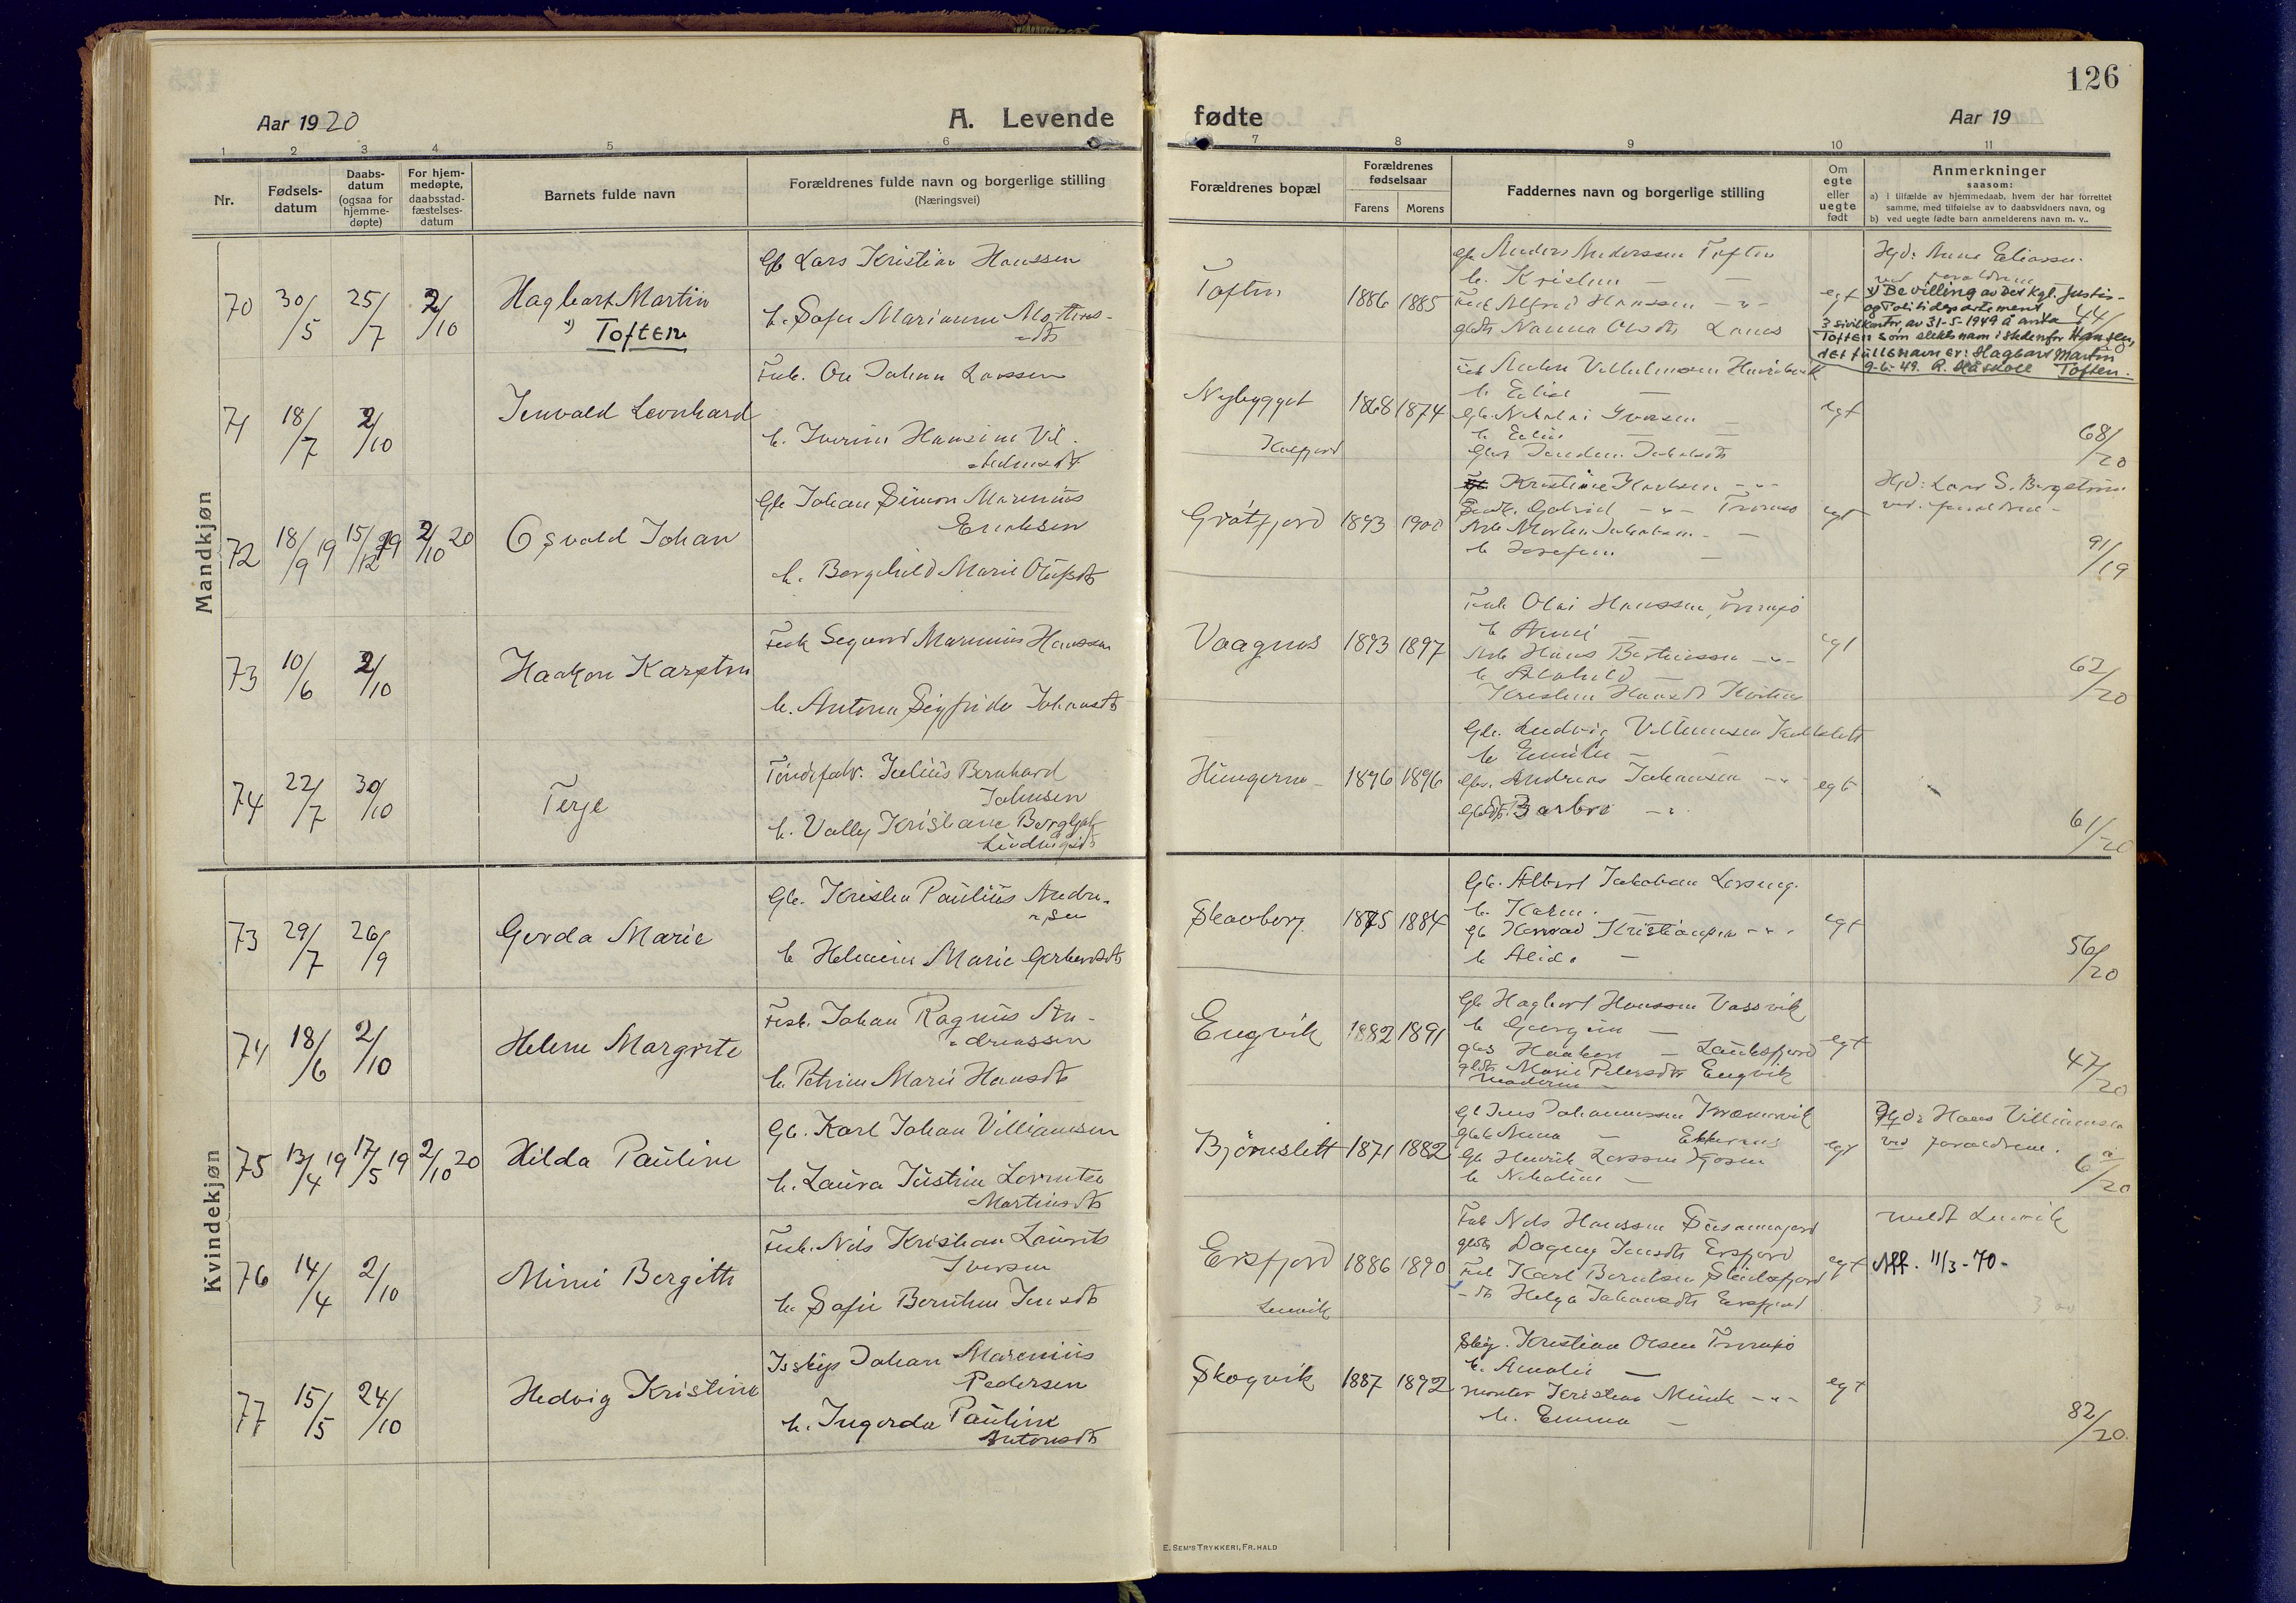 126
Aar 1920
A. Levende
fødte
Aar 19
1 2 3 4 5 6 7 8 9 10 11
Nr.
Fødsels-
datum
Daabs-
datum
(ogsaa for
hjemme-
døpte)
For hjem-
medøpte,
daabsstad-
fæstelses-
datum
Barnets fulde navn
Forældrenes fulde navn og borgerlige stilling
(Næringsvei)
Forældrenes bopæl
Forældrenes
fødselsaar
Farens Morens
Faddernes navn og borgerlige stilling
Om
egte
eller
uegte
født
Anmerkninger
saasom:
a) i tilfælde av hjemmedaab, hvem der har forrettet
samme, med tilføielse av to daabsvidners navn, og
b) ved uegte fødte barn anmelderens navn m. v..
Mandkjøn
70 30/5 25/7 2/10
Hagbart Martin
x) Toften
Gb Lars Kristian Hanssen
h. Sofie Marianne Mortens-
dtr
Toften
1886 1885
Gb Anders Anderssen Toften
h. Kristine
Fisk Alfred Hanssen
egt
Hjd: Anne Eliassen
ved forældrene
x) Bevilling av Det Kgl. Justis-
og Politidepartement
3 sivilkontor av 31-5-1949 å anta
Toften som slektsnavn istedenfor Hansen,
det fulle navn er: Hagbart Martin
Toften.
9-6-49.
44/
71 18/7 2/10
Jenvald Leonhard
Fisk. Ole Johan Larssen
h. Iverine Hansine Vil-
helmsdtr
Nybygget
Kalfjord
1868 1874
h. Elise
Gb. Nikolai Iversen
egt
68/20
72 18/9 19 15/12 19 2/10 20
Osvald Johan
Gb Johan Simon Marenius
Eriksen
h. Borghild Marie Olufsdtr
Gråtfjord
1893 1900
Kristine Karlsen
Gabriel Tromsø
Arb Morten Jakobsen
h Josefine
egt
Hjd: Lars S. Bergstrøm
ved forældrene
91/19
73 10/6 2/10
Haakon Karsten
Fisk Segurd Marenius Hanssen
h. Antona Sigfride Johansdtr
Vaagnes
1893 1897
Fisk Olai Hanssen, Tromsø
h Anni
Arb Hans Bertinssen
egt
62/20
74 22/7 30/10
Terje
Tøndefabr. Julius Bernhard
Johnsen
h. Vally Kristiane Bergljot
Ludvigsdtr
Hungeren
1896 1896
Gb. Ludvig Vilhelmsen
h Emilie
Gb. Andreas Johansen
Gbdtr. Barbro
egt
61/20
Kvindekjøn
73 29/7 26/9
Gerda Marie
Gb. Kristen Paulius Andre-
asen
h Helmine Marie Gerhardsdtr
Skavberg
1875 1884
Gb. Albert Jakobsen
h. Karen
gb Konrad Kristiansen
h Alida
egt
56/20
74 18/6 2/10
Helene Margrete
Fisk. Johan Ragnus An-
dreassen
h Petrine Marie Hansdtr
Engvik
1882 1891
Gb Hagbart Hanssen Vassvik
h Georgine
gbs Haakon
gbdtr Marie Petersdtr Engvik
Moderen
egt
47/20
75 13/4 19 17/5 19 2/10 20
Hilda Pauline
Gb. Karl Johan Villiamsen
h. Laura Justine Lorentse
Martinsdtr
Bjørnslett
1871 1882
Gb Jens Johannessen
gbk Anna
Gb Henrik Larssen
h Nikoline
egt
Hjd: Hans Villiamsen
ved forældrene.
6a/20
76 14/4 2/10
Mimi Bergitte
Fisk. Nils Kristian Laurits
Iversen
h. Sofie Bernthine Jensdtr
Ersfjord
Lenvik
1886 1890
Fisk Nils Hanssen
gbdtr Dagny Jensdtr Ersfjord
Fisk Karl Berntsen
dtr Helga Johansdtr Ersfjord
egt
meldt Lenvik
Aff. 11/3-70-
77 15/5 24/10
Hedvig Kristine
Johan Marenius
Pedersen
h. Ingerda Pauline
Antonsdtr
Skogvik
1887 1892
Kristian Olsen Tromsø
h. Amalie
Kristian Munk
h. Emma
egt
82/20.
E. SEM'S TRYKKERI, FR. HALD